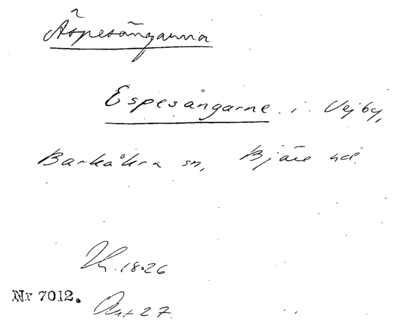 Äspesängarna
Espesängarne i Vejby,
Barkåkra sn, Bjäre hd.
1826
Nr 7012.
27